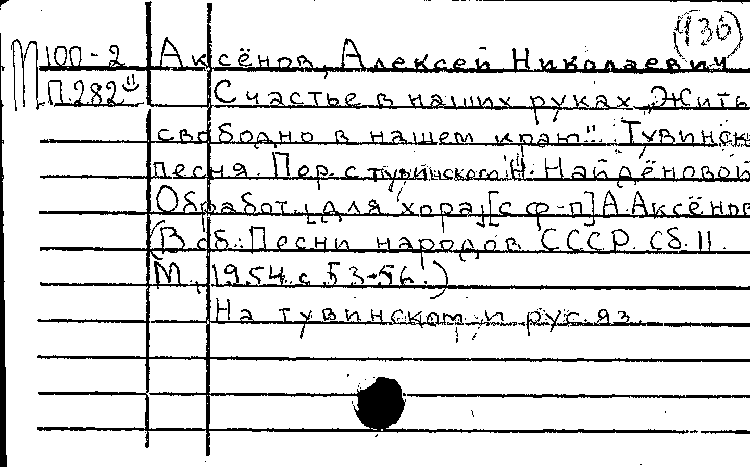 (936)
М 100-2 Аксёнов, Алексей Николаевич
П.282 Счастье в наших руках „Жить
свободно в нашем краю". Тувинск
песня. Пер. с тувинского Н. Найдёновой
Обработ. для хора [с ф-п] А. Аксёнов
(В сб.: Песни народов СССР. Сб. II.
М., 1954. с. 53-56.)
На тувинском и рус. яз.